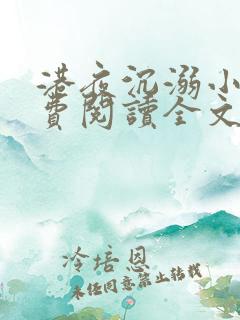 港夜沉溺小
費閱讀全文
冷培恩
未經同意禁止轉載